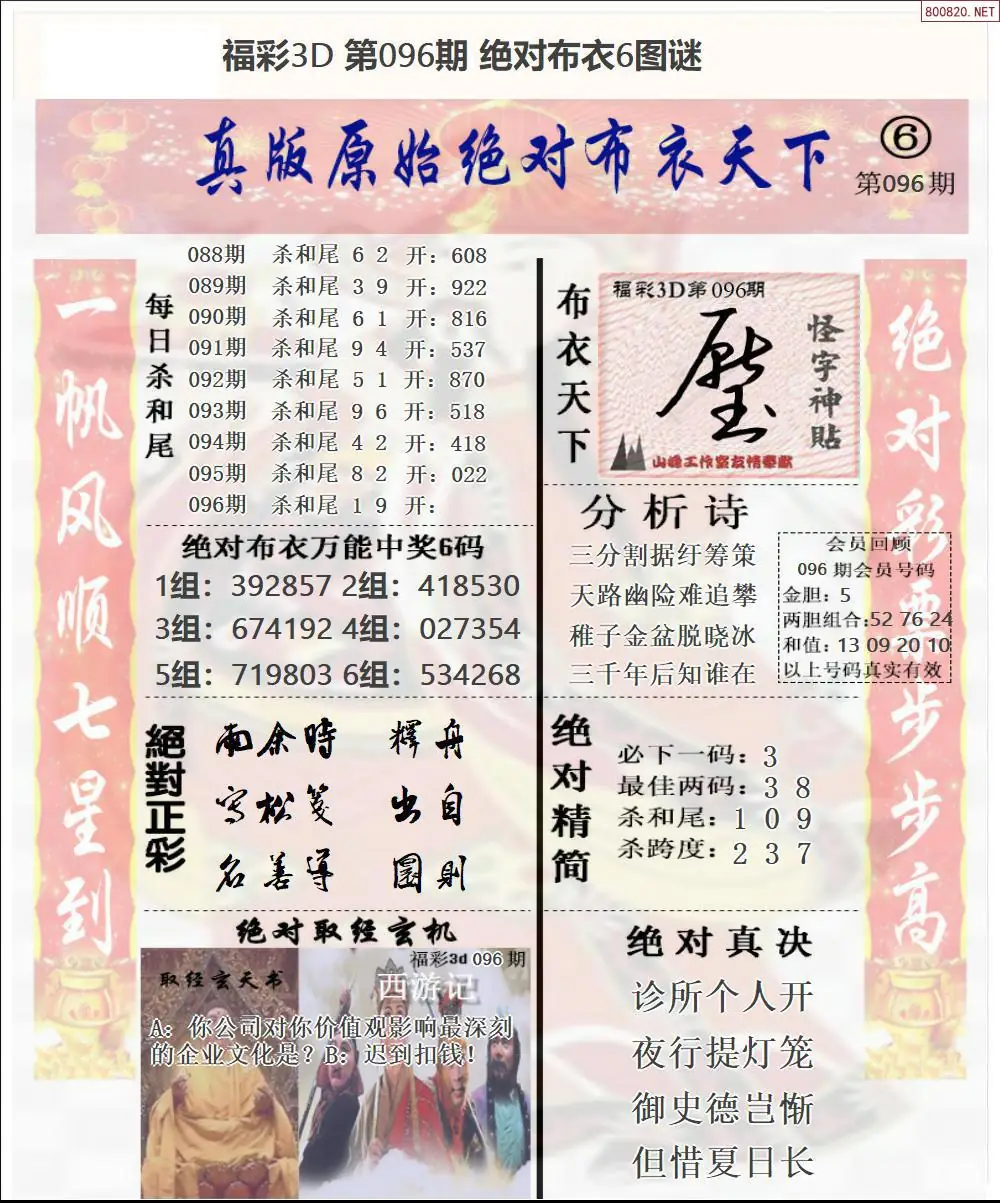 800820.NET
福彩3D 第096期 绝对布衣6图谜
真版原始绝对布衣天下
6
第096期
一帆风顺七星到
每日杀和尾
088期 杀和尾 6 2 开: 608
089期 杀和尾 3 9 开: 922
090期 杀和尾 6 1 开: 816
091期 杀和尾 9 4 开: 537
092期 杀和尾 5 1 开: 870
093期 杀和尾 9 6 开: 518
094期 杀和尾 4 2 开: 418
095期 杀和尾 8 2 开: 022
096期 杀和尾 1 9 开:
绝对布衣万能中奖6码
1组: 392857 2组: 418530
3组: 674192 4组: 027354
5组: 719803 6组: 534268
絕對正彩
南余時 釋舟
写松笺 出自
名善導 圖則
绝对取经玄机
福彩3d 096 期
取经玄天书
西游记
A: 你公司对你价值观影响最深刻
的企业文化是? B: 迟到扣钱!
布衣天下
福彩3D第096期
怪字神貼
山峰工作室友情奉献
分析诗
三分割据纡筹策
天路幽险难追攀
稚子金盆脱晓冰
三千年后知谁在
会员回顾
096 期会员号码
金胆: 5
两胆组合:52 76 24
和值: 13 09 20 10
以上号码真实有效
绝对精简
必下一码: 3
最佳两码: 3 8
杀和尾: 1 0 9
杀跨度: 2 3 7
绝对真决
诊所个人开
夜行提灯笼
御史德岂惭
但惜夏日长
绝对彩票步步高